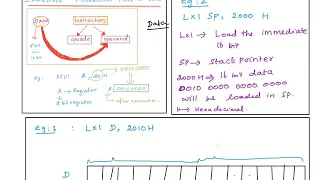 Data
instruction
opcode
operand
eg: MVI A, 20H
00100000
A → Register
8 bit register
A 00100000
after execution
Data
eg: 2
LXI SP, 2000 H
LXI → Load the immediate
16 bit
SP → Stack Pointer
2000H → 16 bit data
0010 0000 0000 0000
will be loaded in SP.
H → Hexadecimal
eg: 3 : LXI D, 2010H
D